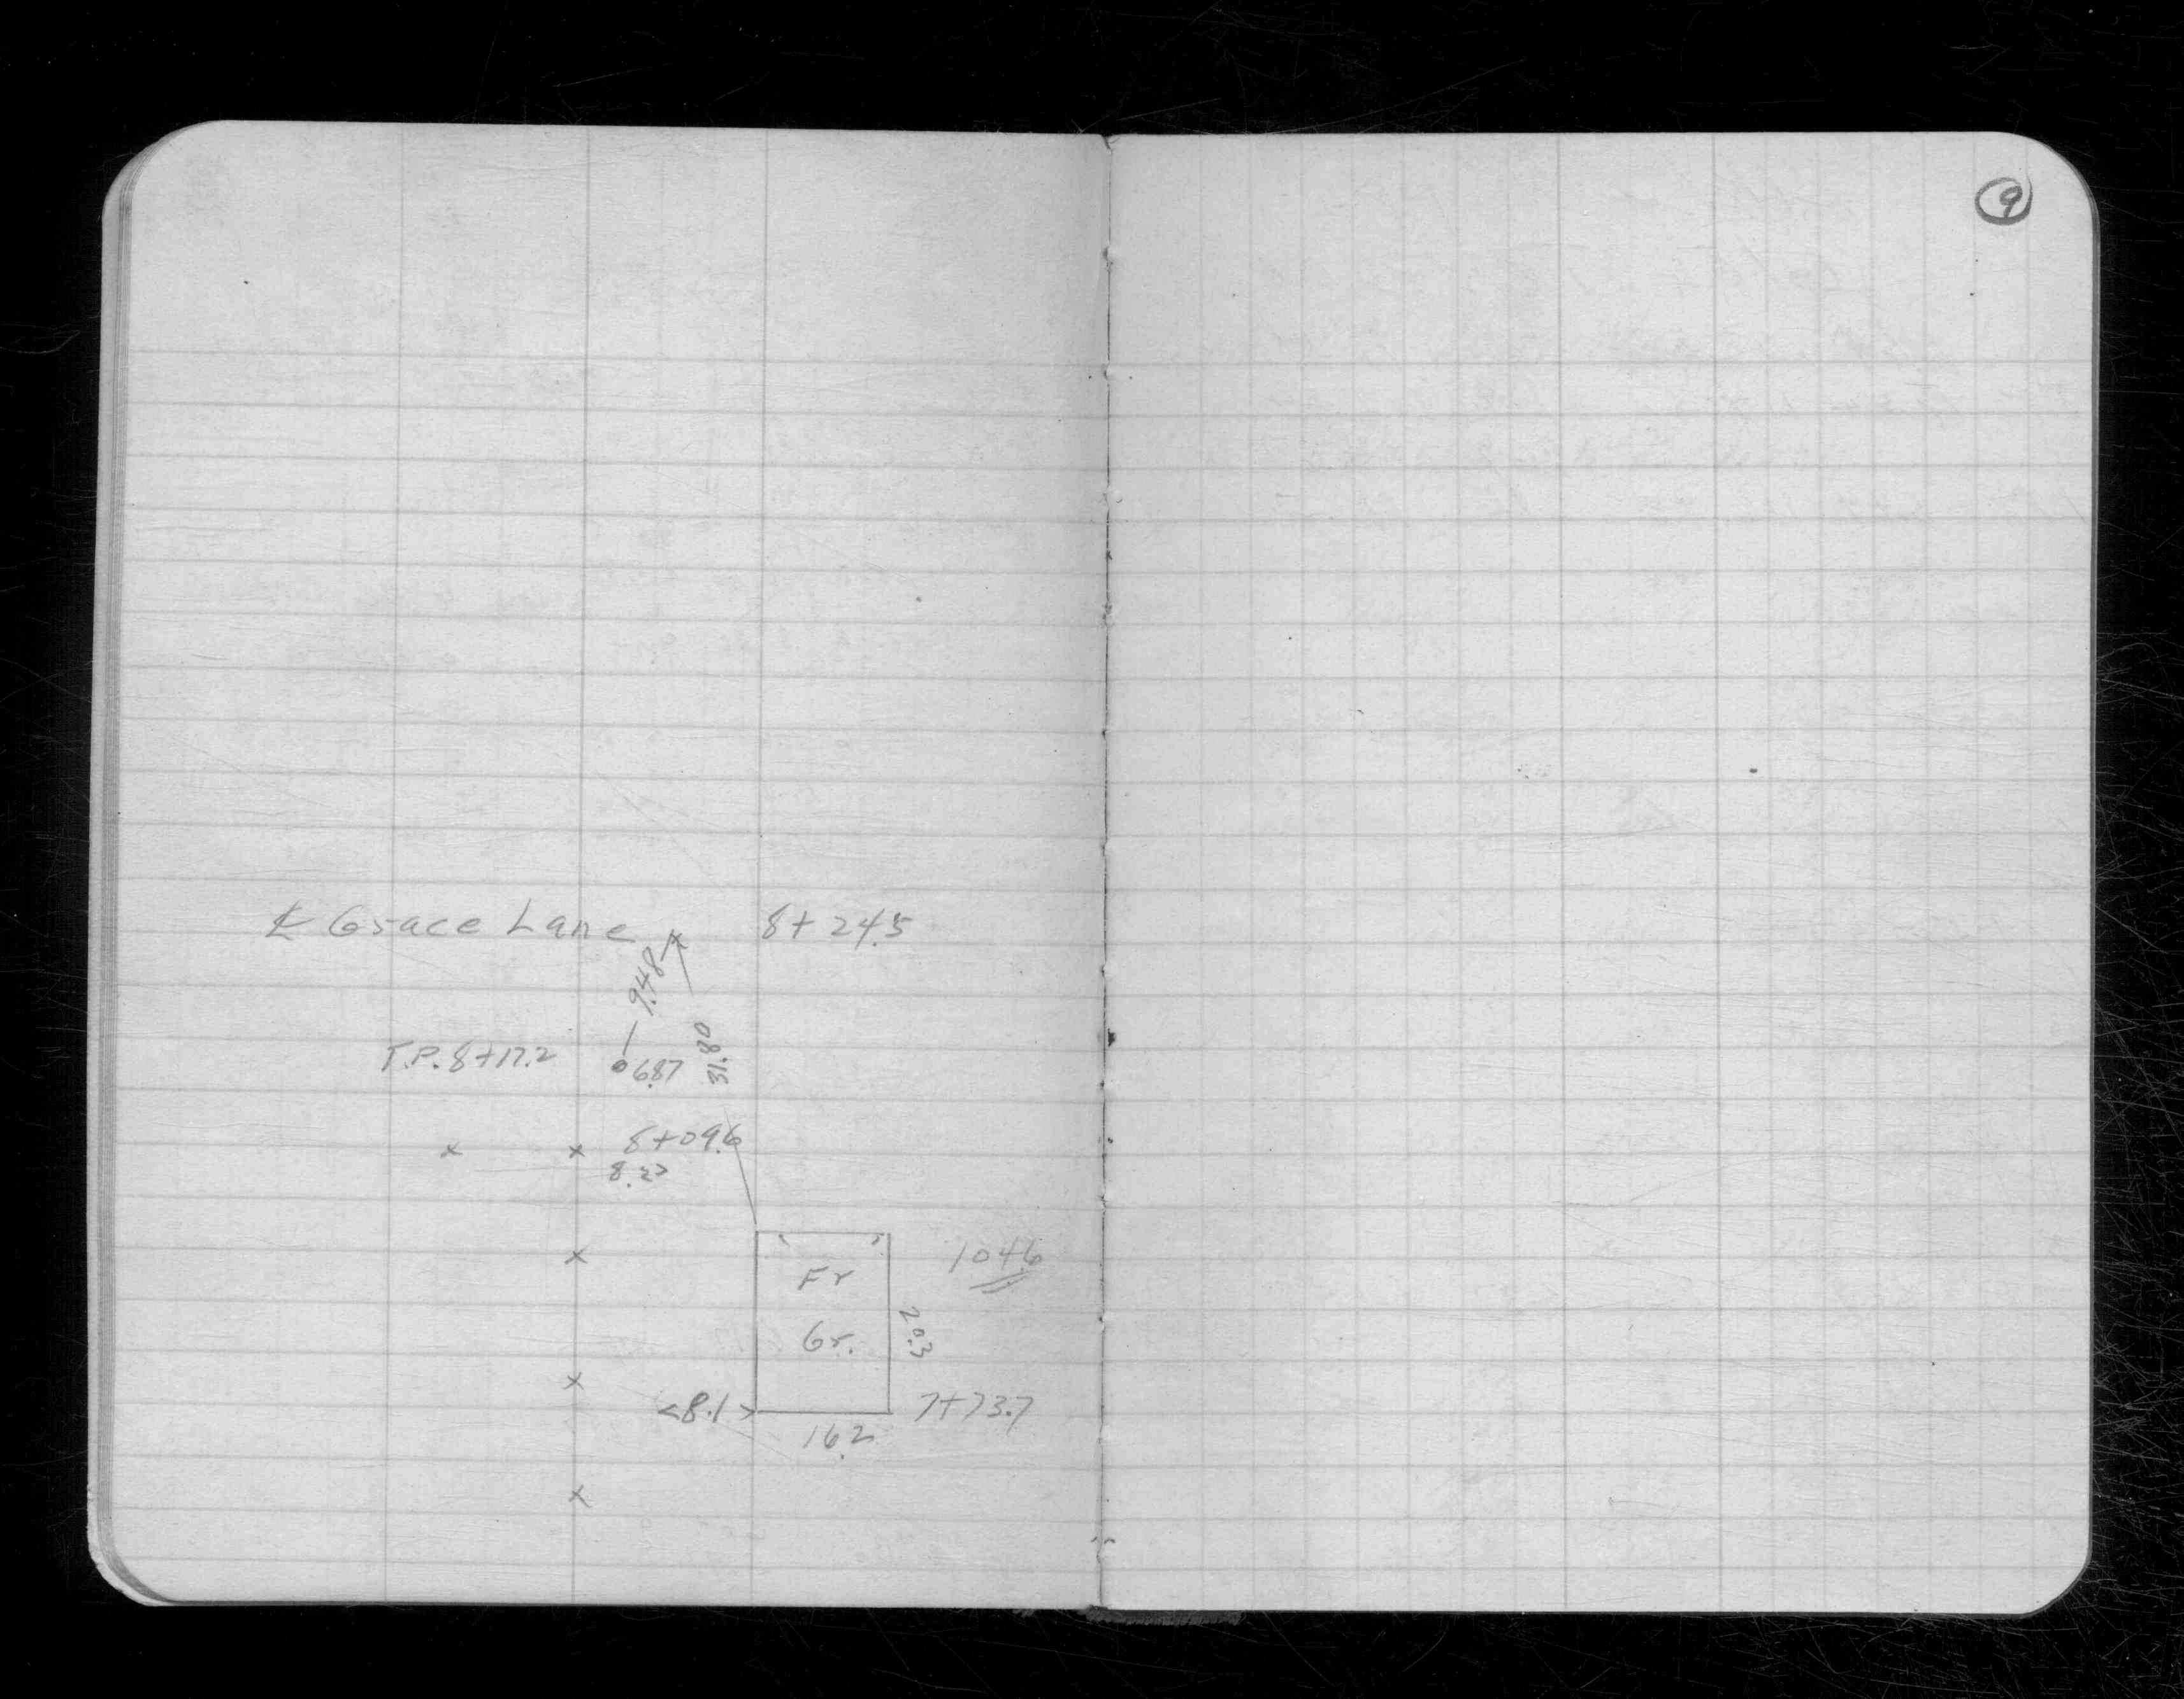 9
℄ Grace Lane 8+24.5
9.48
31.80
T.P. 8+17.2
6.87
8+09.6
Fr
Gr.
104.6
20.3
<8.1>
7+73.7
16.2